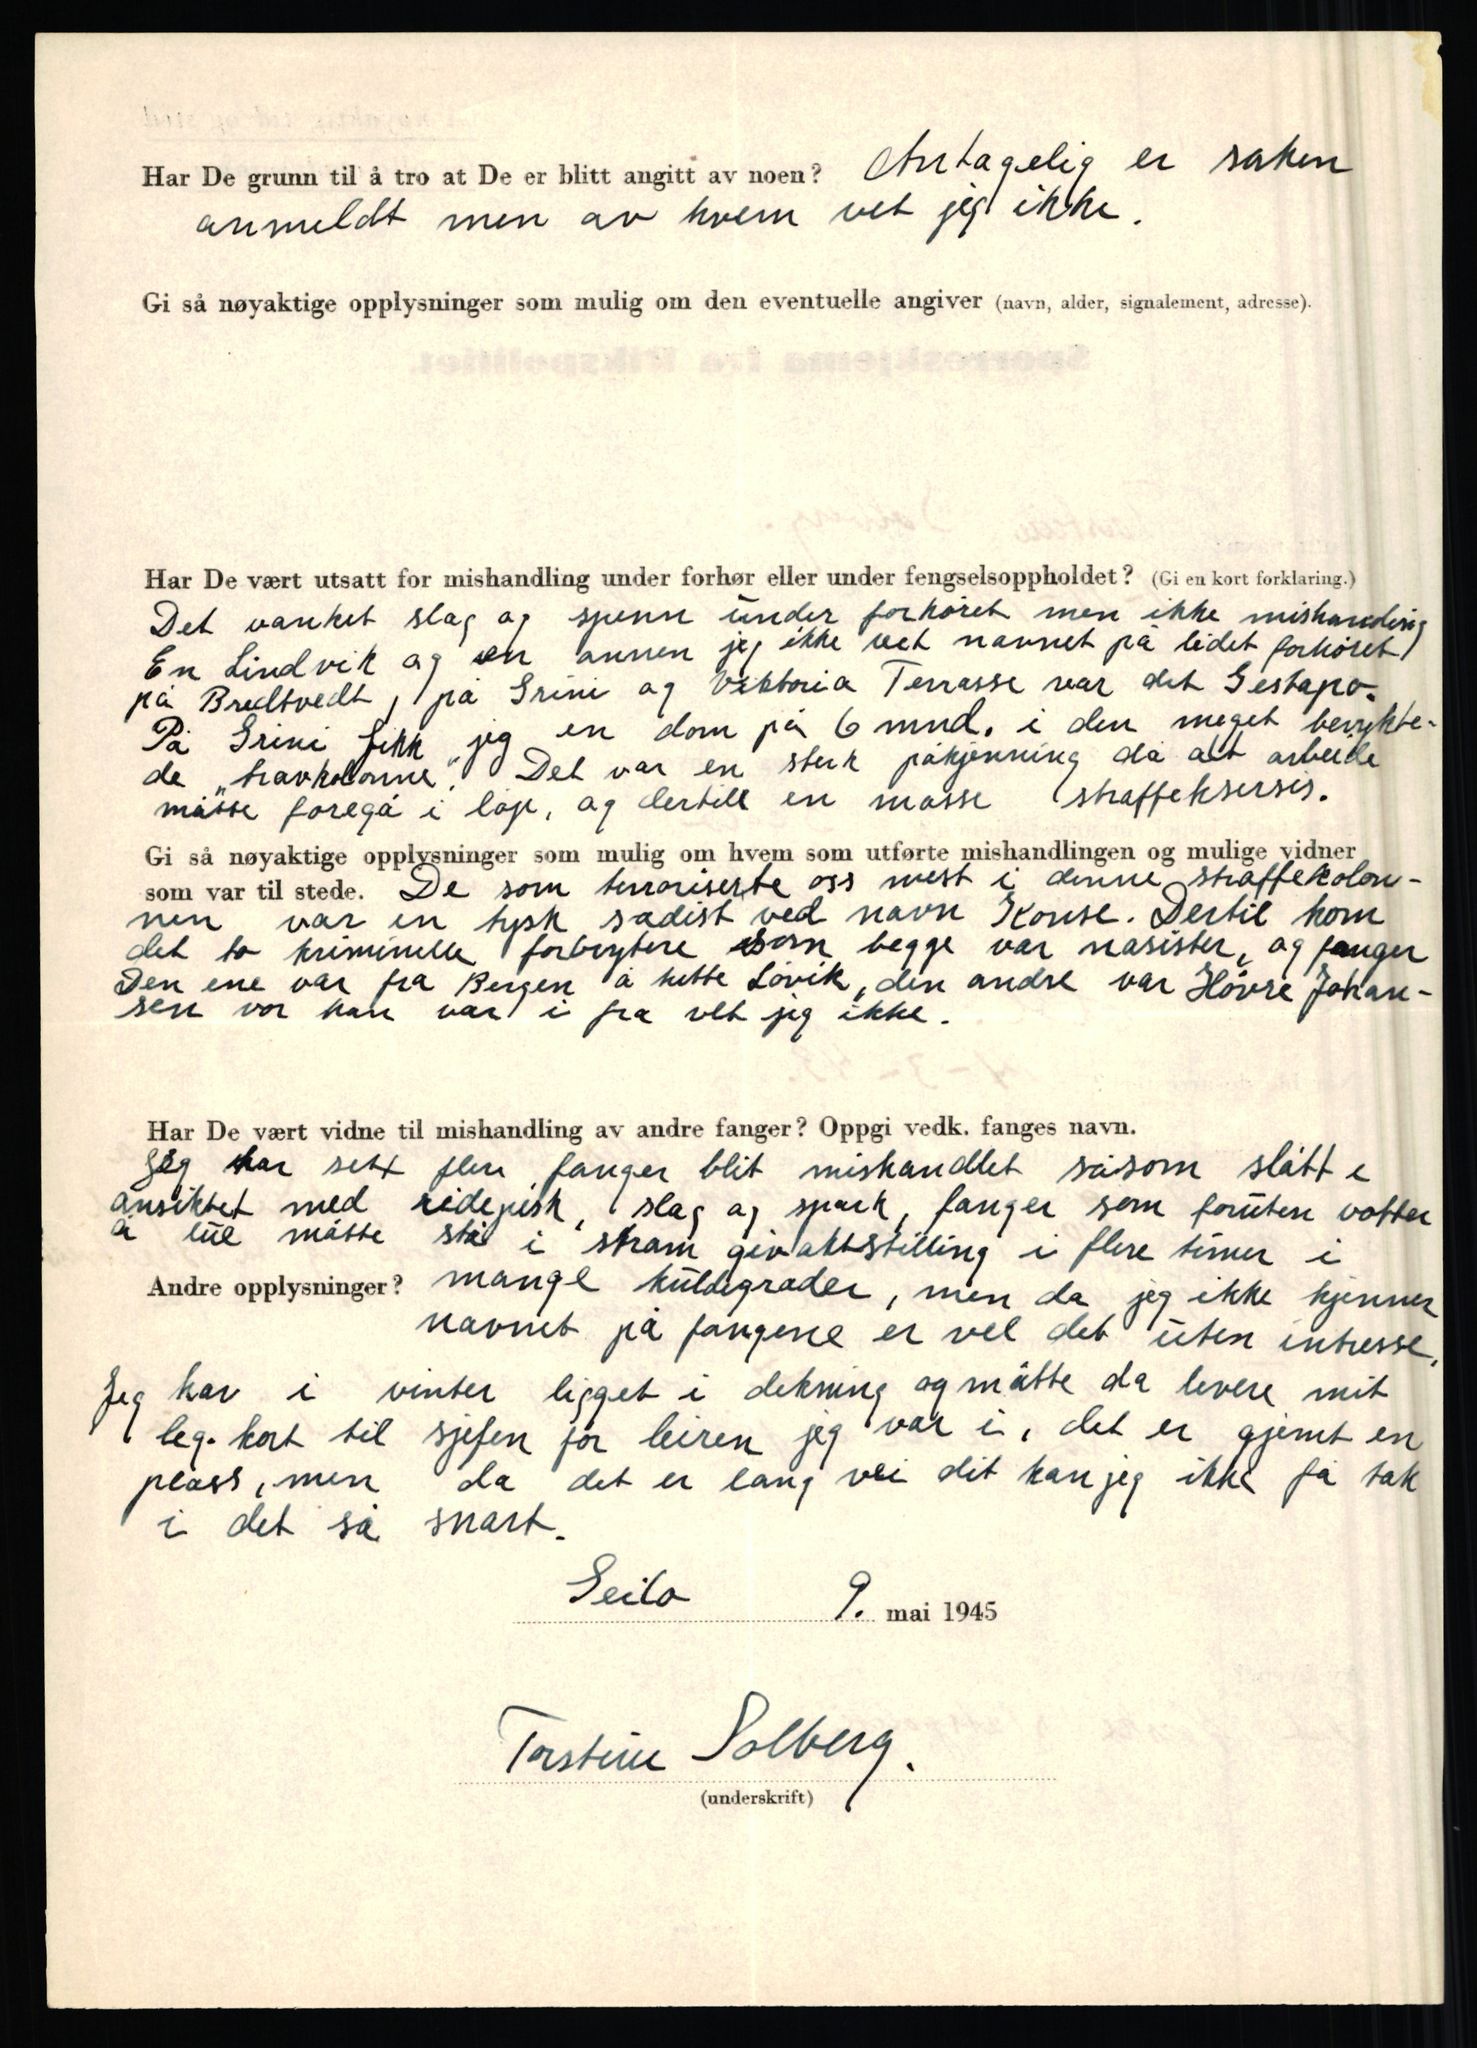 Har De grunn til å tro at De er blitt angitt av noen? Antagelig er saken
anmeldt men av hvem vet jeg ikke.
Gi så nøyaktige opplysninger som mulig om den eventuelle angiver (navn, alder, signalement, adresse).
Har De vært utsatt for mishandling under forhør eller under fengselsoppholdet? (Gi en kort forklaring.)
Det vanket slag og spenn under forhøret men ikke mishandling
En Lindvik og en annen jeg ikke vet navnet på ledet forhøret
på Bredtvedt, på Grini og Viktoria Terrasse var det Gestapo.
På Grini fikk jeg en dom på 6 mnd. i den meget berykte-
de "travkolonne". Det var en sterk påkjenning da alt arbeide
måtte foregå i løp, og dertill en masse straffeksersis.
Gi så nøyaktige opplysninger som mulig om hvem som utførte mishandlingen og mulige vidner
som var til stede. De som terroriserte oss mest i denne straffekolon-
nen var en tysk sadist ved navn Konse. Dertil kom
det to kriminelle forbrytere som begge var nasister, og fanger
Den ene var fra Bergen å hette Løvik, den andre var Høvre Johan-
sen vor han var i fra vet jeg ikke.
Har De vært vidne til mishandling av andre fanger? Oppgi vedk. fanges navn.
Jeg har sett flere fanger blit mishandlet såsom slått i
ansiktet med ridepisk, slag og spark, fanger som foruten votter
å lue måtte stå i stram givaktstilling i flere timer i
Andre opplysninger? mange kuldegrader, men da jeg ikke kjenner
navnet på fangene er vel det uten intresse.
Jeg har i vinter ligget i dekning og måtte da levere mit
leg. kort til sjefen for leiren jeg var i, det er gjemt en
plass, men da det er lang vei dit kan jeg ikke få tak
i det så snart.
Geilo 9. mai 1945
Torstein Solberg.
(underskrift)